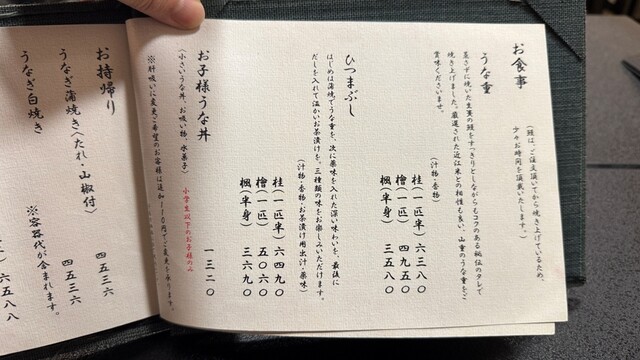 お食事
(鰻は、ご注文頂いてから焼き上げているため、
少々お時間を頂戴いたします。)
うな重
蒸さずに焼いた生粋の鰻を、すっきりとしながらもコクのある秘伝のタレで
焼き上げました。厳選された近江米との相性も良い、山重のうな重をご
賞味くださいませ。
(汁物・香物)
桂(一匹半)六三八〇
檜(一匹)四九五〇
楓(半身)三五八〇
ひつまぶし
はじめは蒲焼でうな重を、次に薬味を入れた深い味わいを、最後に
だしを入れて温かいお茶漬けを。三種類の味をお楽しみいただけます。
(汁物・香物・お茶漬け用出汁・薬味)
桂(一匹半)六四九〇
檜(一匹)五〇六〇
楓(半身)三六九〇
お子様うな丼
一三二〇
(小さいうな丼、お吸い物、水菓子)
小学生以下のお子様のみ
※肝吸いに変更ご希望のお客様は追加110円でご変更を承ります。
お持帰り
うなぎ蒲焼き(たれ・山椒付)
四五三六
うなぎ白焼き
四五三六
※容器代が含まれます。
六五八八